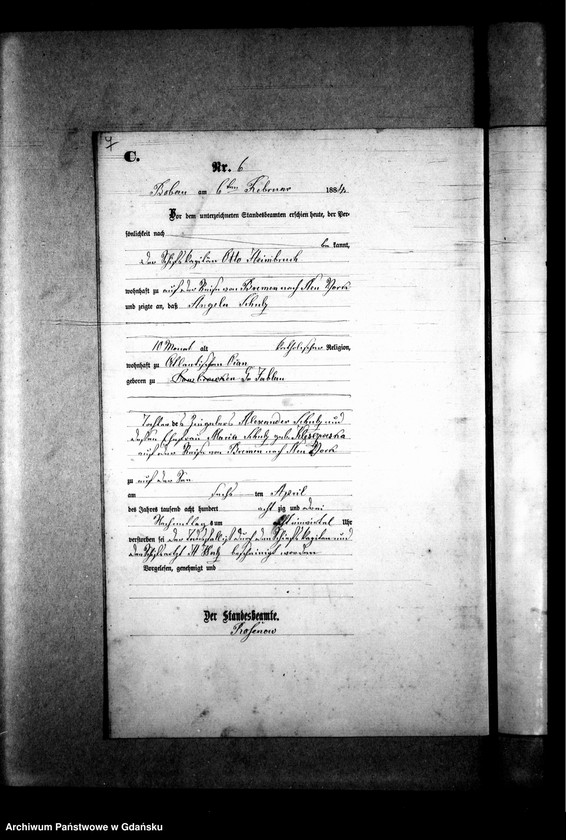 C.
Nr. 6
Bobau am 6ten Februar 1884.
Vor dem unterzeichneten Standesbeamten erschien heute, der Per-
sönlichkeit nach
be kannt,
der Schiffskapitän Otto Heimbruch
wohnhaft zu auf der Reise von Bremen nach New York
und zeigte an, daß Angela Schulz
10 Monat alt katholischer Religion,
wohnhaft zu Atlantischen
geboren zu
Tochter des Alexander Schulz und
dessen Ehefrau Maria Schulz geb.
auf der Reise von Bremen nach New York
zu auf der See
am sechs ten April
des Jahres tausend acht hundert acht zig und drei
Nachmittags um Uhr
verstorben sei der Todesfall ist durch den Schiffs Kapitän und
den Schiffsarzt bescheinigt worden
Vorgelesen, genehmigt und
Der Standesbeamte.
Prohsnow
Archiwum Państwowe w Gdańsku